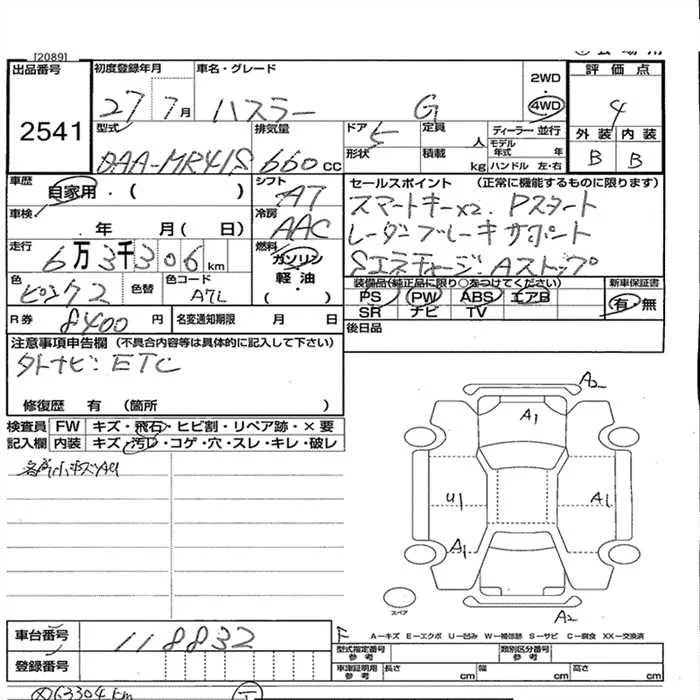 [2089]
出品番号 初度登録年月 車名・グレード 2WD 評価点
2541 27 7月 ハスラー G 4WD 4
型式 排気量 ドア 5 定員 人 ディーラー・並行 外装 内装
DAA-MR41S 660cc 形状 積載 kg モデル年式 年 ハンドル 左・右 B B
車歴 自家用・( ) シフト AT セールスポイント (正常に機能するものに限ります)
車検 年 月( 日) 冷房 AAC スマートキーx2. Pスタート
走行 6万3千306km 燃料 ガソリン レーダブレーキサポート
軽油 ( ) Sエネチャージ:Aストップ
色 ピンク2 色替 色コード A7L 装備品(純正品に限り○をつけてください) 新車保証書
PS PW ABS エアB 有・無
SR ナビ TV
R券 8400円 名変通知期限 月 日 後日品
注意事項申告欄 (不具合内容等は具体的に記入して下さい)
外ナビ:ETC
修復歴 有 (箇所 )
検査員 FW キズ・飛石・ヒビ割・リペア跡・×要
記入欄 内装 キズ・汚レ・コゲ・穴・スレ・キレ・破レ
A2
A1
U1 A1
A1
スペア
A2
車台番号 118832 F A-キズ E-エクボ U-凹み W-補修跡 S-サビ C-腐食 XX-交換済
型式指定番号 参考 類別区分番号 参考
登録番号 車庫証明用 参考 長さ cm 幅 cm 高さ cm
63304km